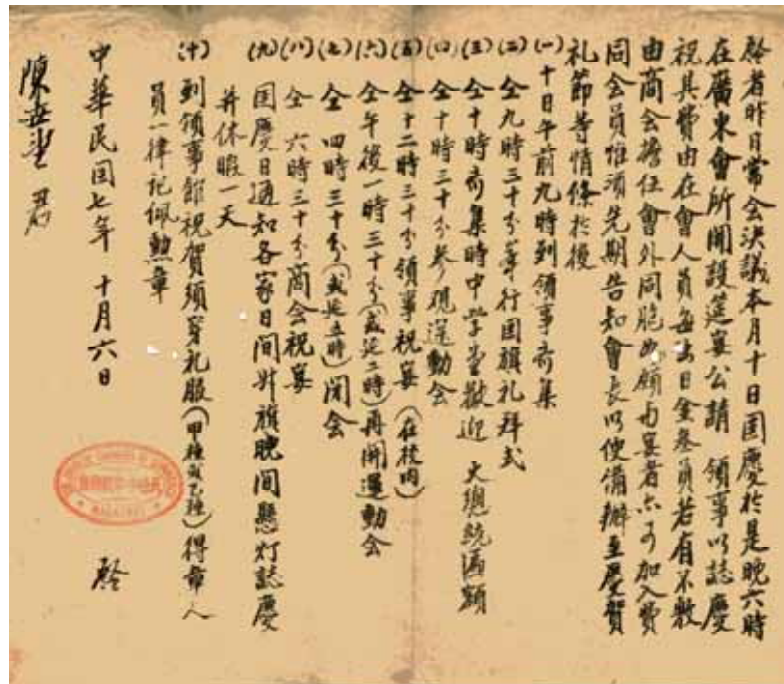 啓者昨日常会決議本月十日国慶於是晚六時
在廣東會所開設筵宴公請 領事以誌慶
祝其費由在會人員每出日金叁員若有不敷
由商会擔任會外同胞如願与宴者亦可加入費
同会員惟須先期告知會長以便備辦至慶賀
礼節等情條於後
(一) 十日午前九時到領事斋集
(二) 仝九時三十分舉行国旗礼拜式
(三) 仝十時斋集時中学堂歡迎 大總統匾額
(四) 仝十時三十分参观運動会
(五) 仝十二時三十分領事祝宴(在校内)
(六) 仝午後一時三十分(或延二時)再開運動会
(七) 仝 四時三十分(或延五時)闭会
(八) 仝 六時三十分商会祝宴
(九) 国慶日通知各家日间升旗晚间懸灯誌慶
并休暇一天
(十) 到領事館祝賀須穿礼服(甲種或乙種)得章人
員一律記佩勲章
中華民国七年 十月六日
啓
陳世望君